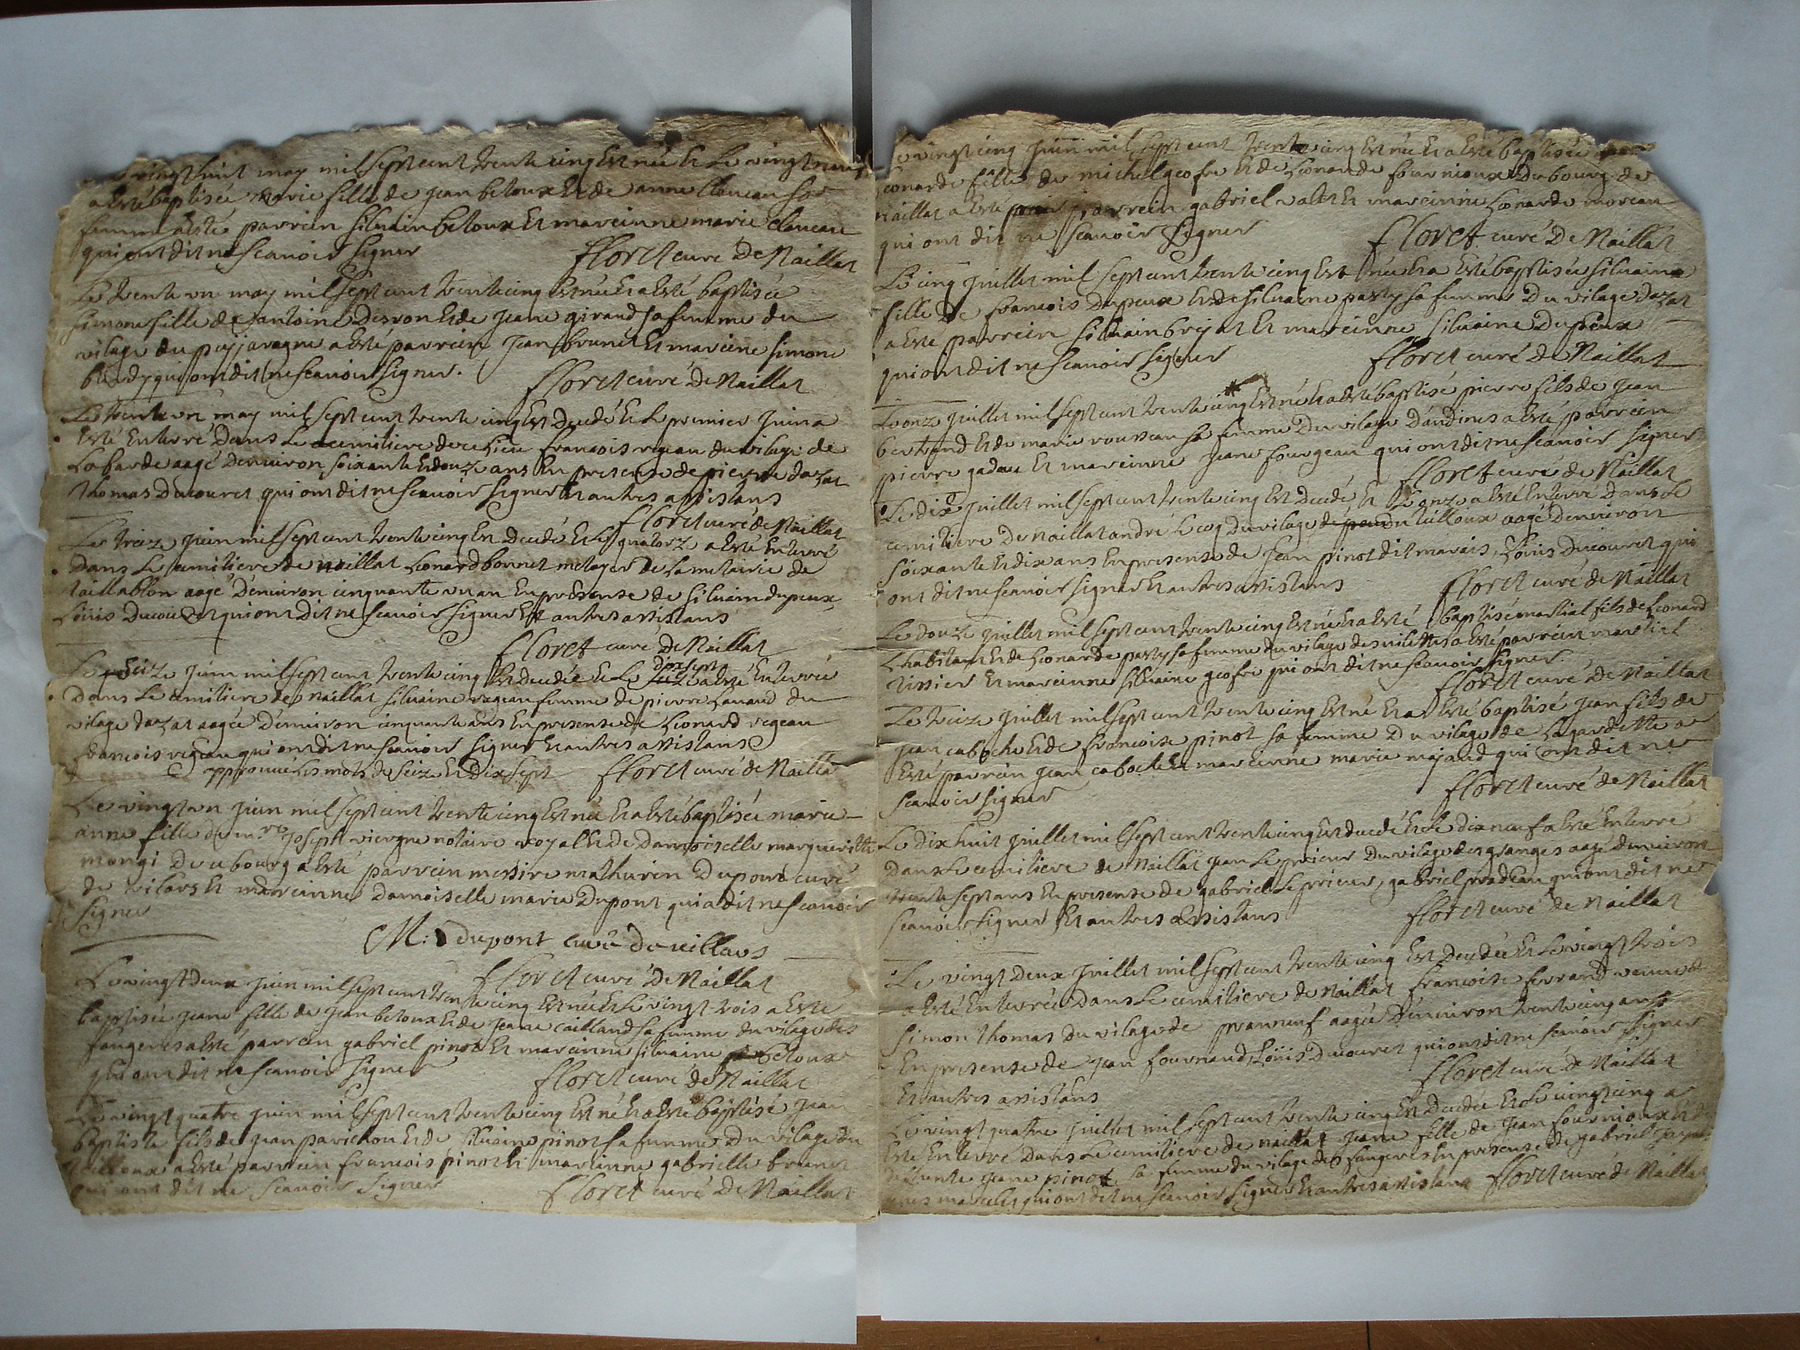 vingt huit may mil sept cent trente cinq est née et le vingt neuf
a esté baptisée marie fille de jean betoux et de anne
femme a esté parrein silvain betoux et mareinne marie
qui ont dit ne scavoir signer floret curé de Naillat
Le trente un may mil sept cent trente cinq est née et a esté baptisée
simone fille de antoine desron et de jeane giraud sa femme du
vilage du puyjaragne a esté parrein jean brunet et mareine simone
qui ont dit ne scavoir signer. floret curé de Naillat
Le trente un may mil sept cent trente cinq est decedé et le premier juin a
esté enterré dans le cemitiere de ce lieu francois regeau du vilage de
La barde aagé d'environ soixante et douze ans en presence de pierre dazat
thomas ducouret qui ont dit ne scavoir signer et autres assistans
floret curé de Naillat
Le treize juin mil sept cent trente cinq est decedé et le quatorze a esté enterré
dans le cemitiere de naillat Leonard bonnet metayer de la metairie de
taillablon aagé d'environ cinquante un an en presence de silvain dupeux
Loüis ducouret qui ont dit ne scavoir signer et autres assistans
floret curé de Naillat
Le seize juin mil sept cent trente cinq est decedée et le dix sept a esté enterrée
dans le cemitiere de Naillat silvaine regeau femme de pierre Lanaud du
vilage dazat aagée d'environ cinquante ans en presence de Leonard regeau
francois regeau qui ont dit ne scavoir signer et autres assistans
approuvé les mots de seize et dix sept floret curé de Naillat
Le vingt un juin mil sept cent trente cinq est née et a esté baptisée marie
anne fille de mre Joseph vierge notaire royal et de damoiselle margueritte
mongi de ce bourg a esté parrein messire mathurin dupont curé
de vilars et mareinne damoiselle marie dupont qui a dit ne scavoir
signer
M: dupont curé de villars
floret curé de Naillat
Le vingt deux juin mil sept cent trente cinq est née et le vingt trois a esté
baptisée jeane fille de jean betoux et de jeane caillaud sa femme du vilage des
fougeres a esté parrein gabriel pinot et mareinne silvaine betoux
qui ont dit ne scavoir signer floret curé de Naillat
Le vingt quatre juin mil sept cent trente cinq est né et a esté baptisé jean
baptiste fils de jean parichou et de silvaine pinot sa femme du vilage du
tailloux a esté parrein francois pinot et mareinne gabrielle brunet
qui ont dit ne scavoir signer floret curé de Naillat
Le vingt cinq juin mil sept cent trente cinq est née et a esté baptisée
Leonarde fille de michel geofre et de Leonarde fournioux du bourg de
naillat a esté parrein gabriel valet et mareinne Leonarde moreau
qui ont dit ne scavoir signer floret curé de Naillat
Le cinq juillet mil sept cent trente cinq est née et a esté baptisée silvaine
fille de francois dupeux et de silvaine pasty sa femme du vilage dazat
a esté parrein silvain et mareinne silvaine dupeux
qui ont dit ne scavoir signer floret curé de Naillat
Le onze juillet mil sept cent trente cinq est né et a esté baptisé pierre fils de jean
bertrand et de marie rousseau sa femme du vilage daudines a esté parrein
pierre gadau et mareinne jeane fourgeau qui ont dit ne scavoir signer
floret curé de Naillat
Le dix juillet mil sept cent trente cinq est decedé et le onze a esté enterré dans le
cemitiere de naillat andré Lecoq du vilage du tailloux aagé d'environ
soixante et dix ans en presence de jean pinot dit marais, Loüis ducouret qui
ont dit ne scavoir signer et autres assistans floret curé de Naillat
Le douze juillet mil sept cent trente cinq est né et a esté baptisé martial fils de Leonard
Lhabitant et de Leonarde pasty sa femme du vilage des a esté parrein martial
tixier et mareinne silvaine geofre qui ont dit ne scavoir signer.
floret curé de Naillat
Le treize juillet mil sept cent trente cinq est né et a esté baptisé jean fils de
jean caboche et de francoise pinot sa femme du vilage de Lagardette a
esté parrein jean caboche et mareinne marie majaud qui ont dit ne
scavoir signer floret curé de Naillat
Le dix huit juillet mil sept cent trente cinq est decedé et le dix neuf a esté enterré
dans le cemitiere de Naillat jean Leprieur du vilage des granges aagé d'environ
trente sept ans en presence de gabriel Leprieur, gabriel pradeau qui ont dit ne
scavoir signer et autres assistans floret curé de Naillat
Le vingt deux juillet mil sept cent trente cinq est decedée et le vingt trois
a esté enterrée dans le cemitiere de Naillat francoise ferrand veuve de
simon thomas du vilage de praneuf aagée d'environ trente cinq ans
en presence de jean fournaud, Loüis ducouret qui ont dit ne scavoir signer
et autres assistans floret curé de Naillat
Le vingt quatre juillet mil sept cent trente cinq est decedée et le vingt cinq a
esté enterrée dans le cemitiere de naillat jeane fille de jean fournioux et de
jeane pinot sa femme du vilage des fougeres en presence de gabriel
qui ont dit ne scavoir signer et autres assistans floret curé de Naillat